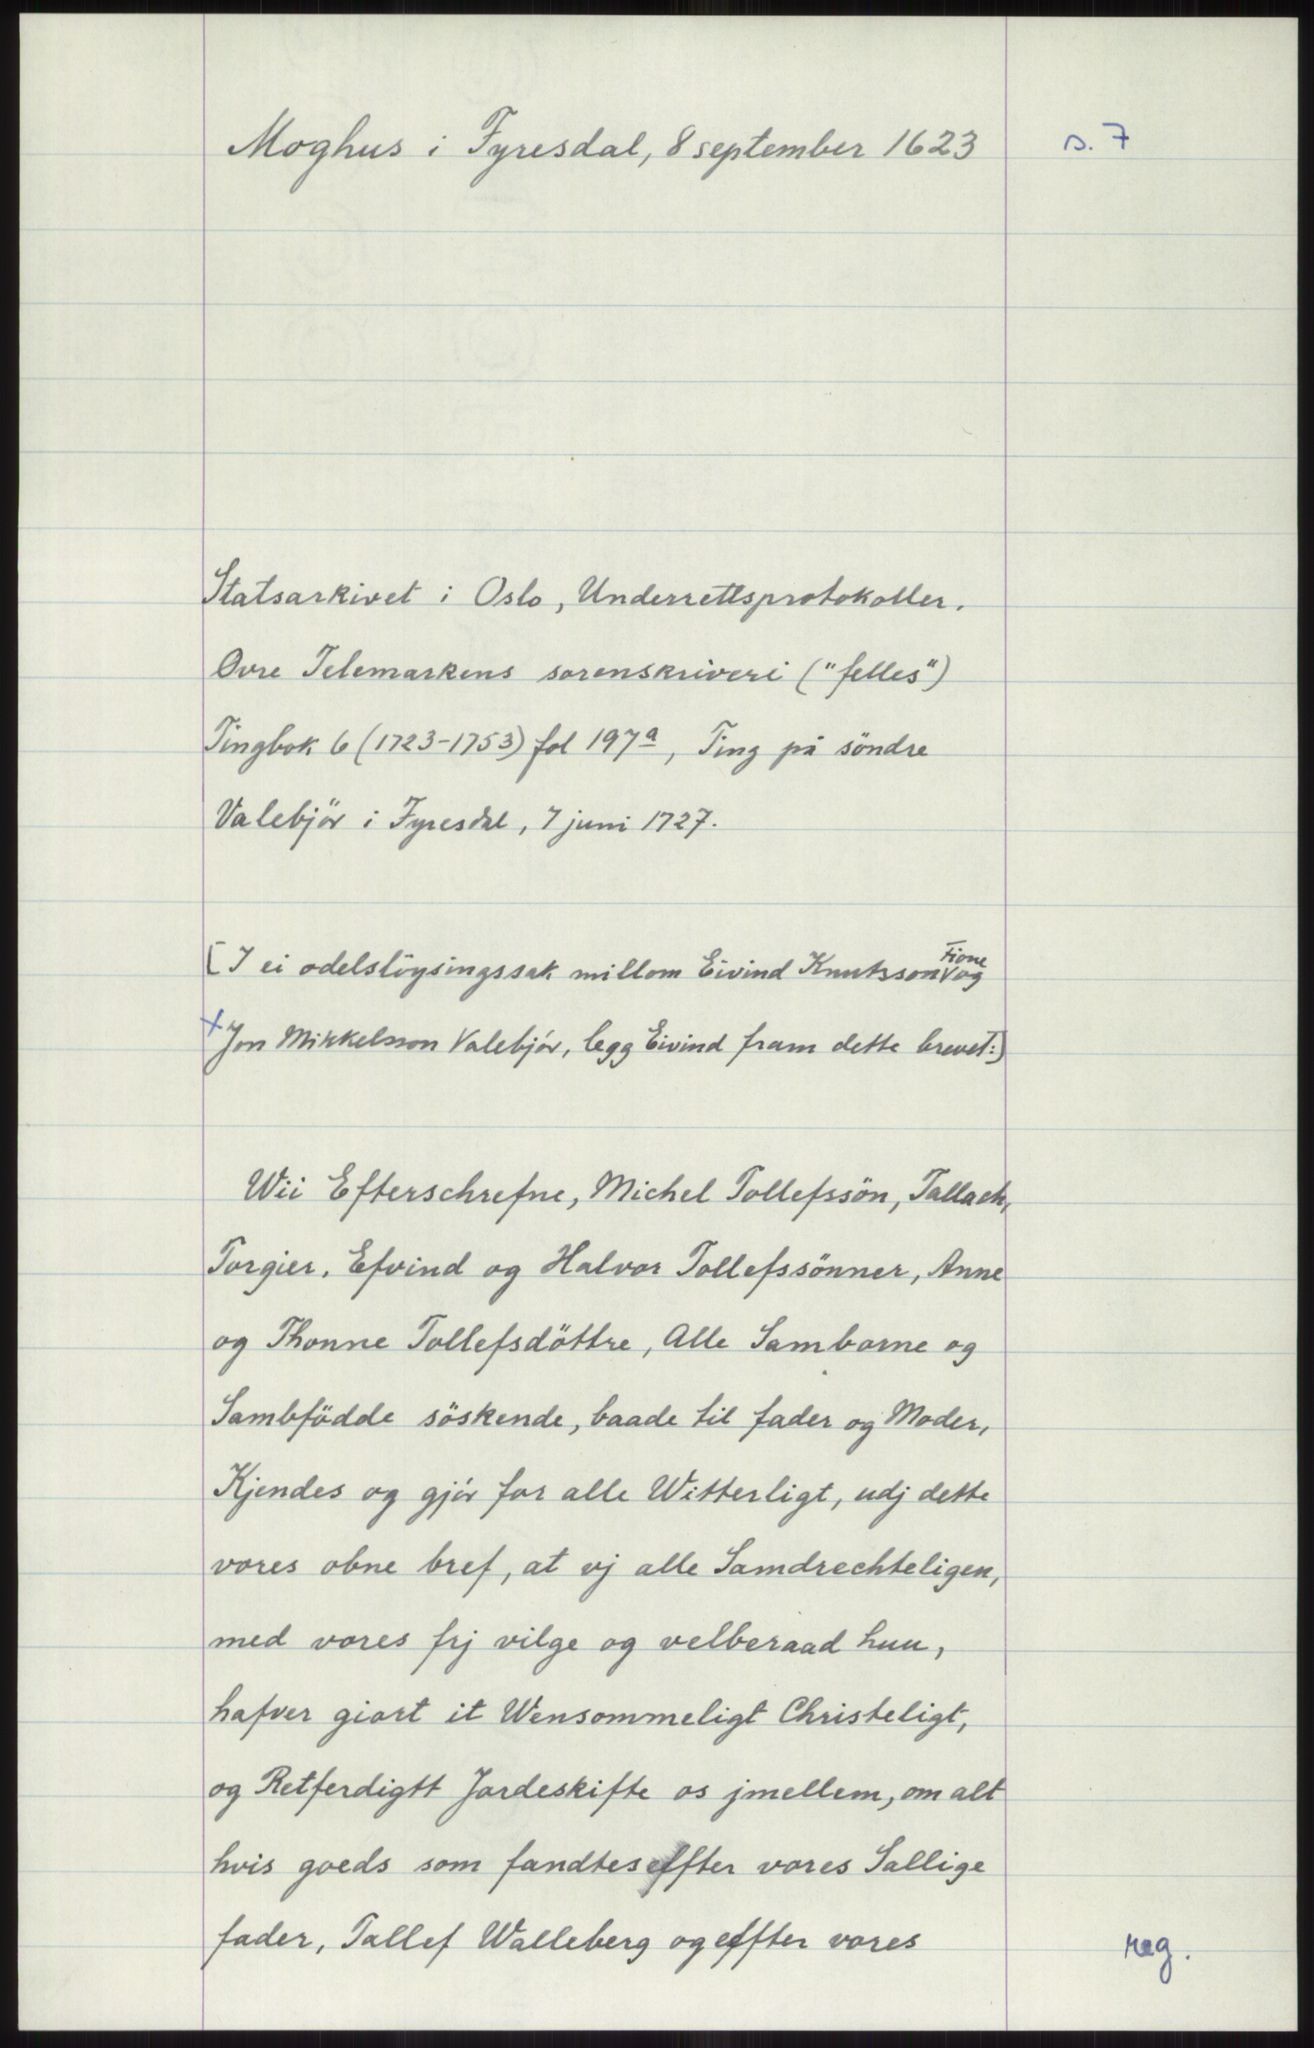 Moghus i Fyresdal, 8 september 1623
s. 7
Statsarkivet i Oslo, Underrettsprotokoller.
Ovre Telemarkens sorenskriveri ("felles")
Tingbok 6 (1723-1753) fol 197a, Ting på söndre
Valebjör i Fyresdal, 7 juni 1727.
[I ei odelslöysingssak millom Eivind Knutsson Fione og
+ Jon Mikkelsson Valebjör, legg Eivind fram dette brevet:]
Wii Efterschrefne, Michel Tollefssön, Tallach,
Torgier, Efvind og Halvor Tollefssönner, Anne
og Thonne Tollefsdöttre, Alle Samborne og
Sambfödde söskende, baade til fader og Moder,
Kjendes og gjör for alle Witterligt, udj dette
vores obne bref, at vj alle Samdrechteligen,
med vores frj vilge og velberaad huu,
hafver giort it Wensommeligt Christeligt,
og Retferdigtt Jordeskifte os jmellem, om alt
hvis goeds som fandtes effter vores Sallige
fader, Tallef Walleberg og effter vores
reg.